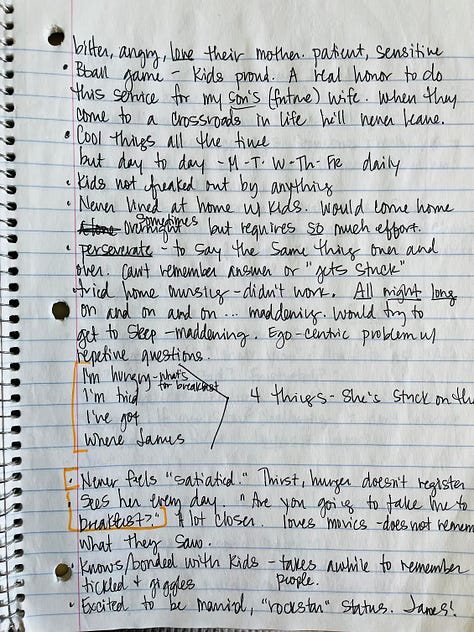 bitter, angry, love their mother. patient, sensitive
• Bball game - kids proud. A real honor to do
this service for my son's (future) wife. When they
come to a crossroads in life he'll never leave.
• Cool things all the time
but day to day - M - T - W - Th - Fr daily
• Kids not freaked out by anything
• Never lived at home w/ kids. Would come home
sometimes
overnight but requires so much effort.
• perseverate - to say the same thing over and
over. Can't remember answer or "gets stuck"
• tried home nursing - didn't work. All night long
on and on and on ... maddening. Would try to
get to sleep - maddening. Ego-centric problem w/
repetive questions.
I'm hungry - what's for breakfast
I'm tired
I've got
Where James
4 things - She's stuck on th
• Never feels "satiated." Thirst, hunger doesn't register
• Sees her every day. "Are you going to take me to
breakfast?" A lot closer. loves movies - does not remem
what they saw.
• Knows/bonded with kids - takes awhile to remember
tickled + giggles people.
• Excited to be married, "rockstar" status. James!